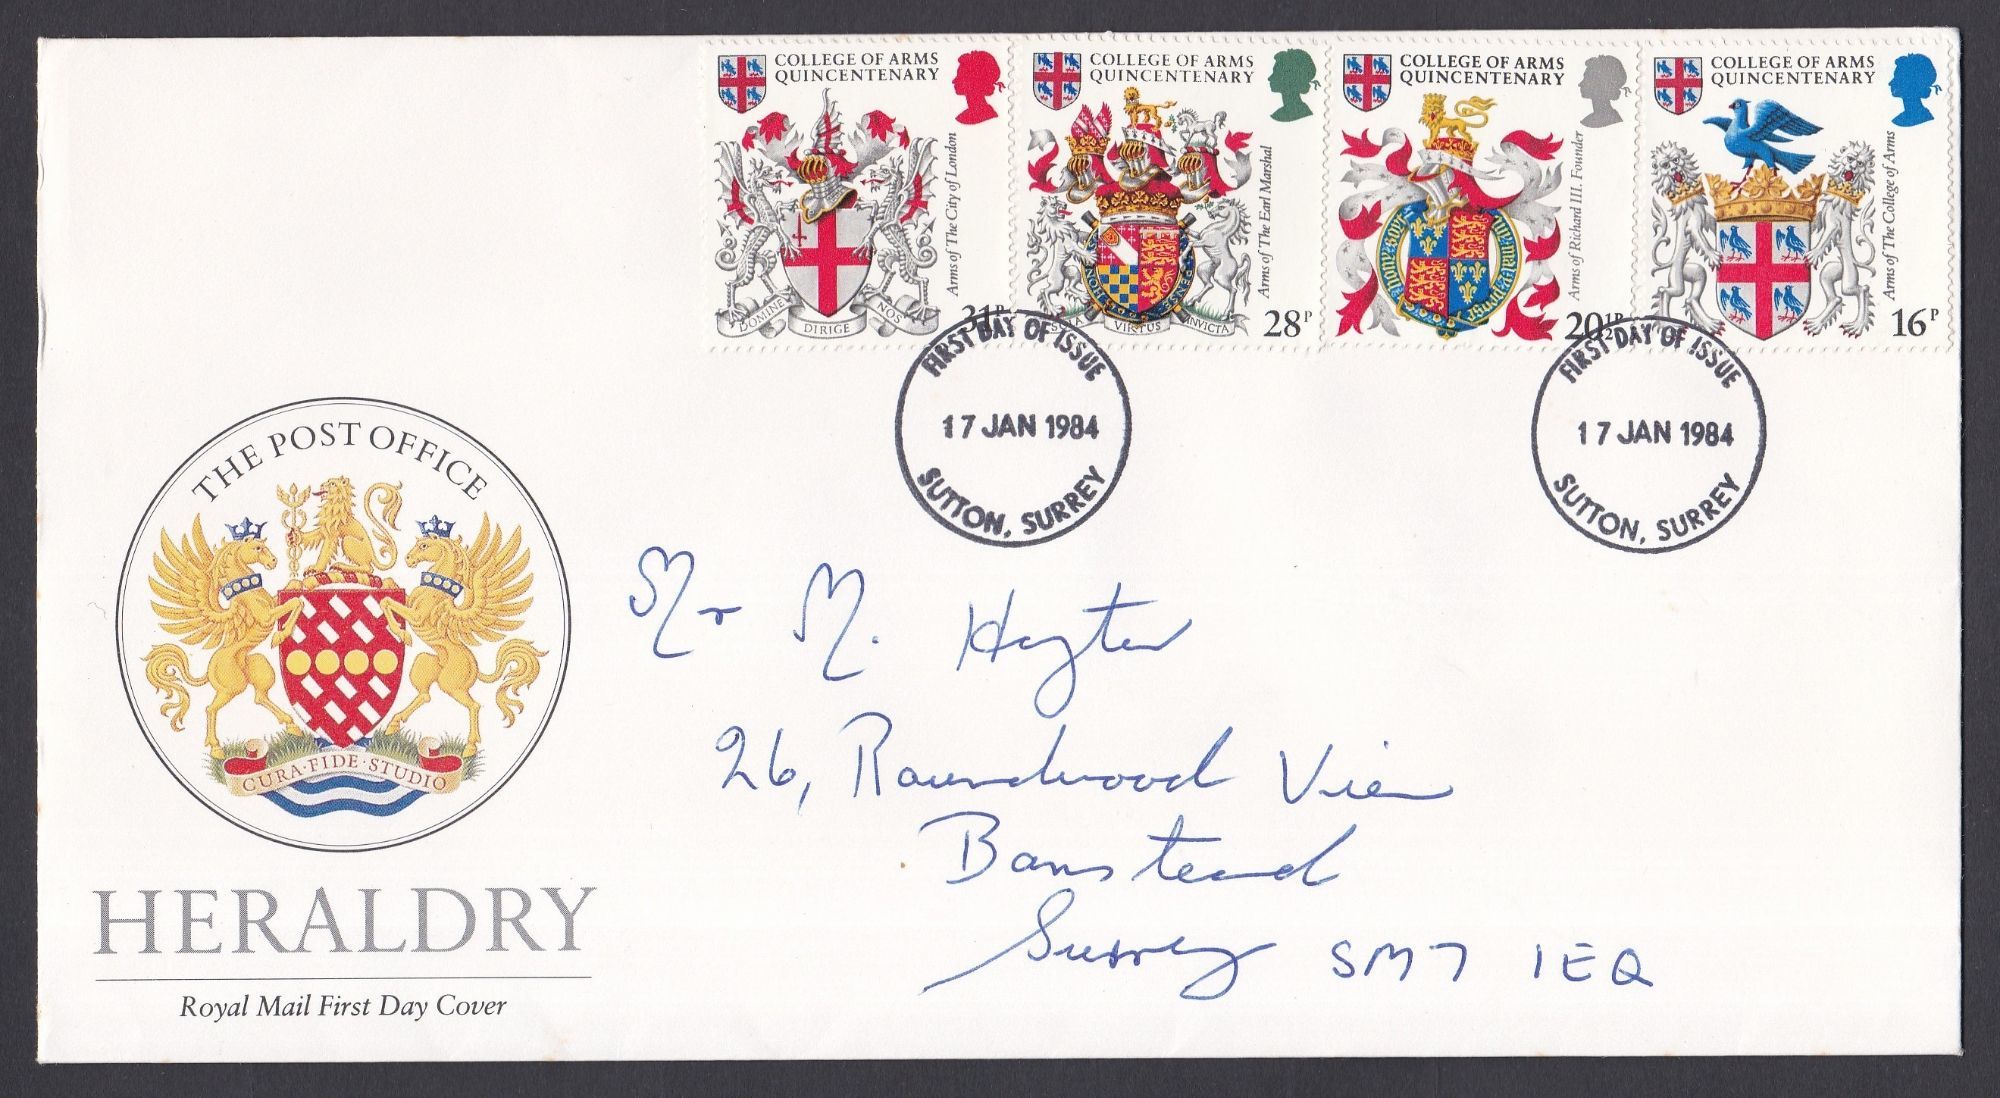 COLLEGE OF ARMS
QUINCENTENARY
Arms of The City of London
DOMINE DIRIGE NOS
31P
COLLEGE OF ARMS
QUINCENTENARY
Arms of The Earl Marshal
SOLA VIRTUS INVICTA
28P
COLLEGE OF ARMS
QUINCENTENARY
Arms of Richard III. Founder
20½P
COLLEGE OF ARMS
QUINCENTENARY
Arms of The College of Arms
16P
FIRST DAY OF ISSUE
17 JAN 1984
SUTTON, SURREY
FIRST DAY OF ISSUE
17 JAN 1984
SUTTON, SURREY
THE POST OFFICE
CURA·FIDE·STUDIO
HERALDRY
Royal Mail First Day Cover
Mr M. Hayter
26, Roundwood View
Banstead
Surrey SM7 1EQ